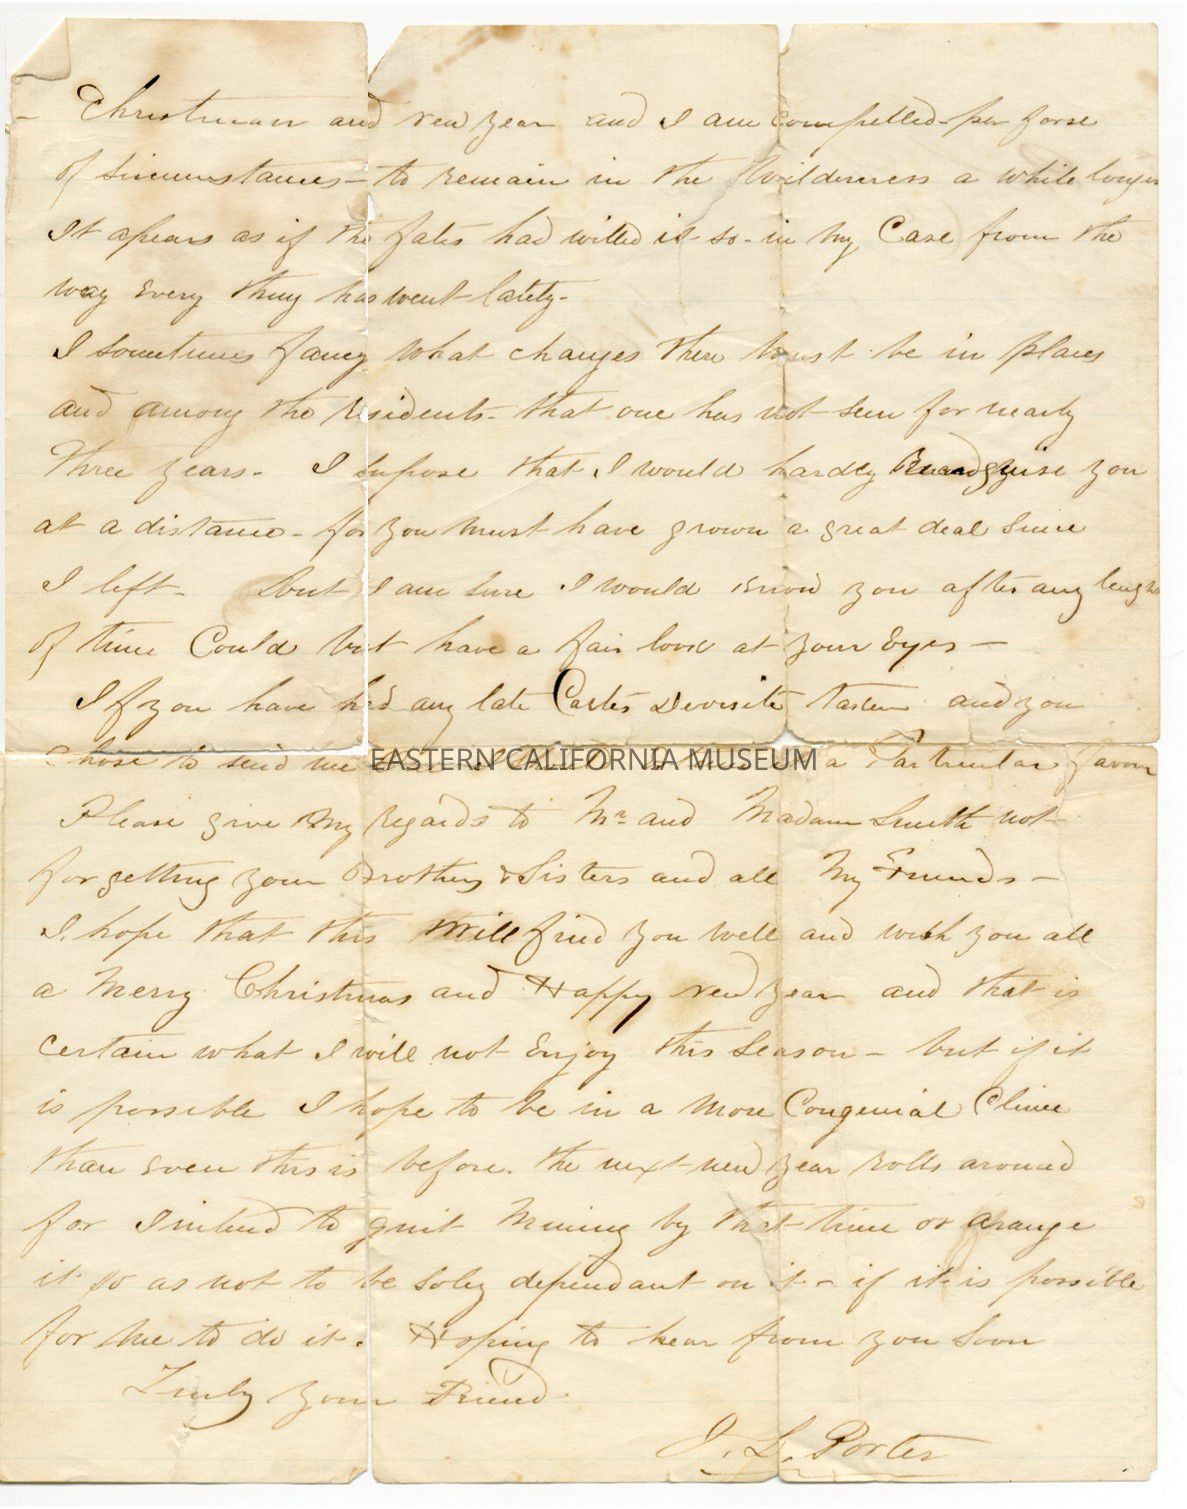 - Christmass and new year and I am Compelled per forse
of Sircumstances - to Remain in the Wilderness a while longer
It apears as if the fates had willed it so - in my Case from the
way Every thing has went lately -
I sometimes fancy what changes there must be in places
and among the Residents - that one has not seen for nearly
Three years - I supose that I would hardly you
at a distance - for you must have grown a great deal Since
I left - but I am Sure I would know you after any lenght
of time Could but have a fair look at your Eyes -
If you have had any late Cartes Devisite taken and you
Chose to send me a Particular favour
EASTERN CALIFORNIA MUSEUM
Please give my Regards to Mr and Madam Smith not
forgetting your Brothers & Sisters and all my Friends -
I hope that this Will find you well and wish you all
a merry Christmas and Happy new year and that is
Certain what I will not Enjoy this Season - but if it
is possible I hope to be in a more Congenial Clime
than Even this is before the next new year Rolls around
for I intend to quit mining by that time or arange
it so as not to be soley dependant on it - if it is possible
for me to do it. Hoping to hear from you Soon
Truly your Friend
J. L. Porter